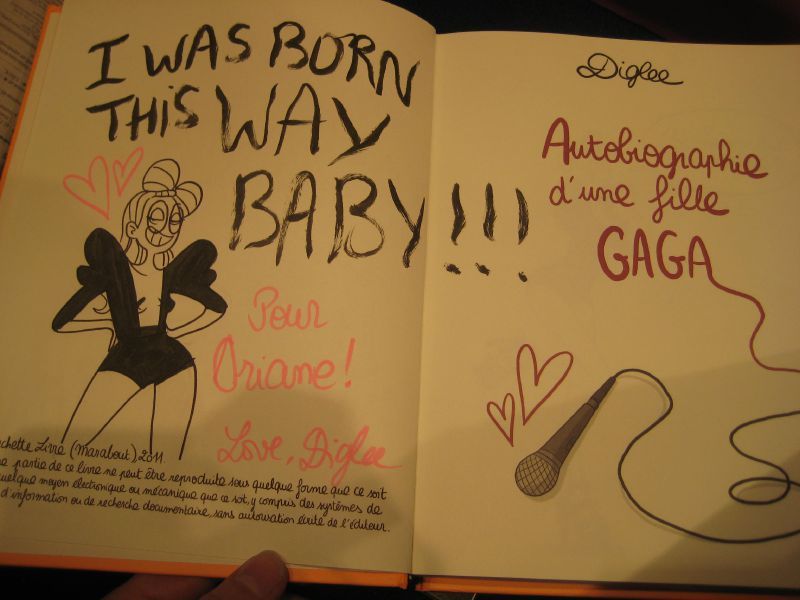 I WAS BORN
THIS WAY
BABY!!!
Pour
Oriane!
Love, Diglee
chette Livre (Marabout) 2011.
e partie de ce livre ne peut être reproduite sous quelque forme que ce soit
uelque moyen électronique ou mécanique que ce soit, y compris des systèmes de
d'information ou de recherche documentaire, sans autorisation écrite de l'éditeur.
Diglee
Autobiographie
d'une fille
GAGA